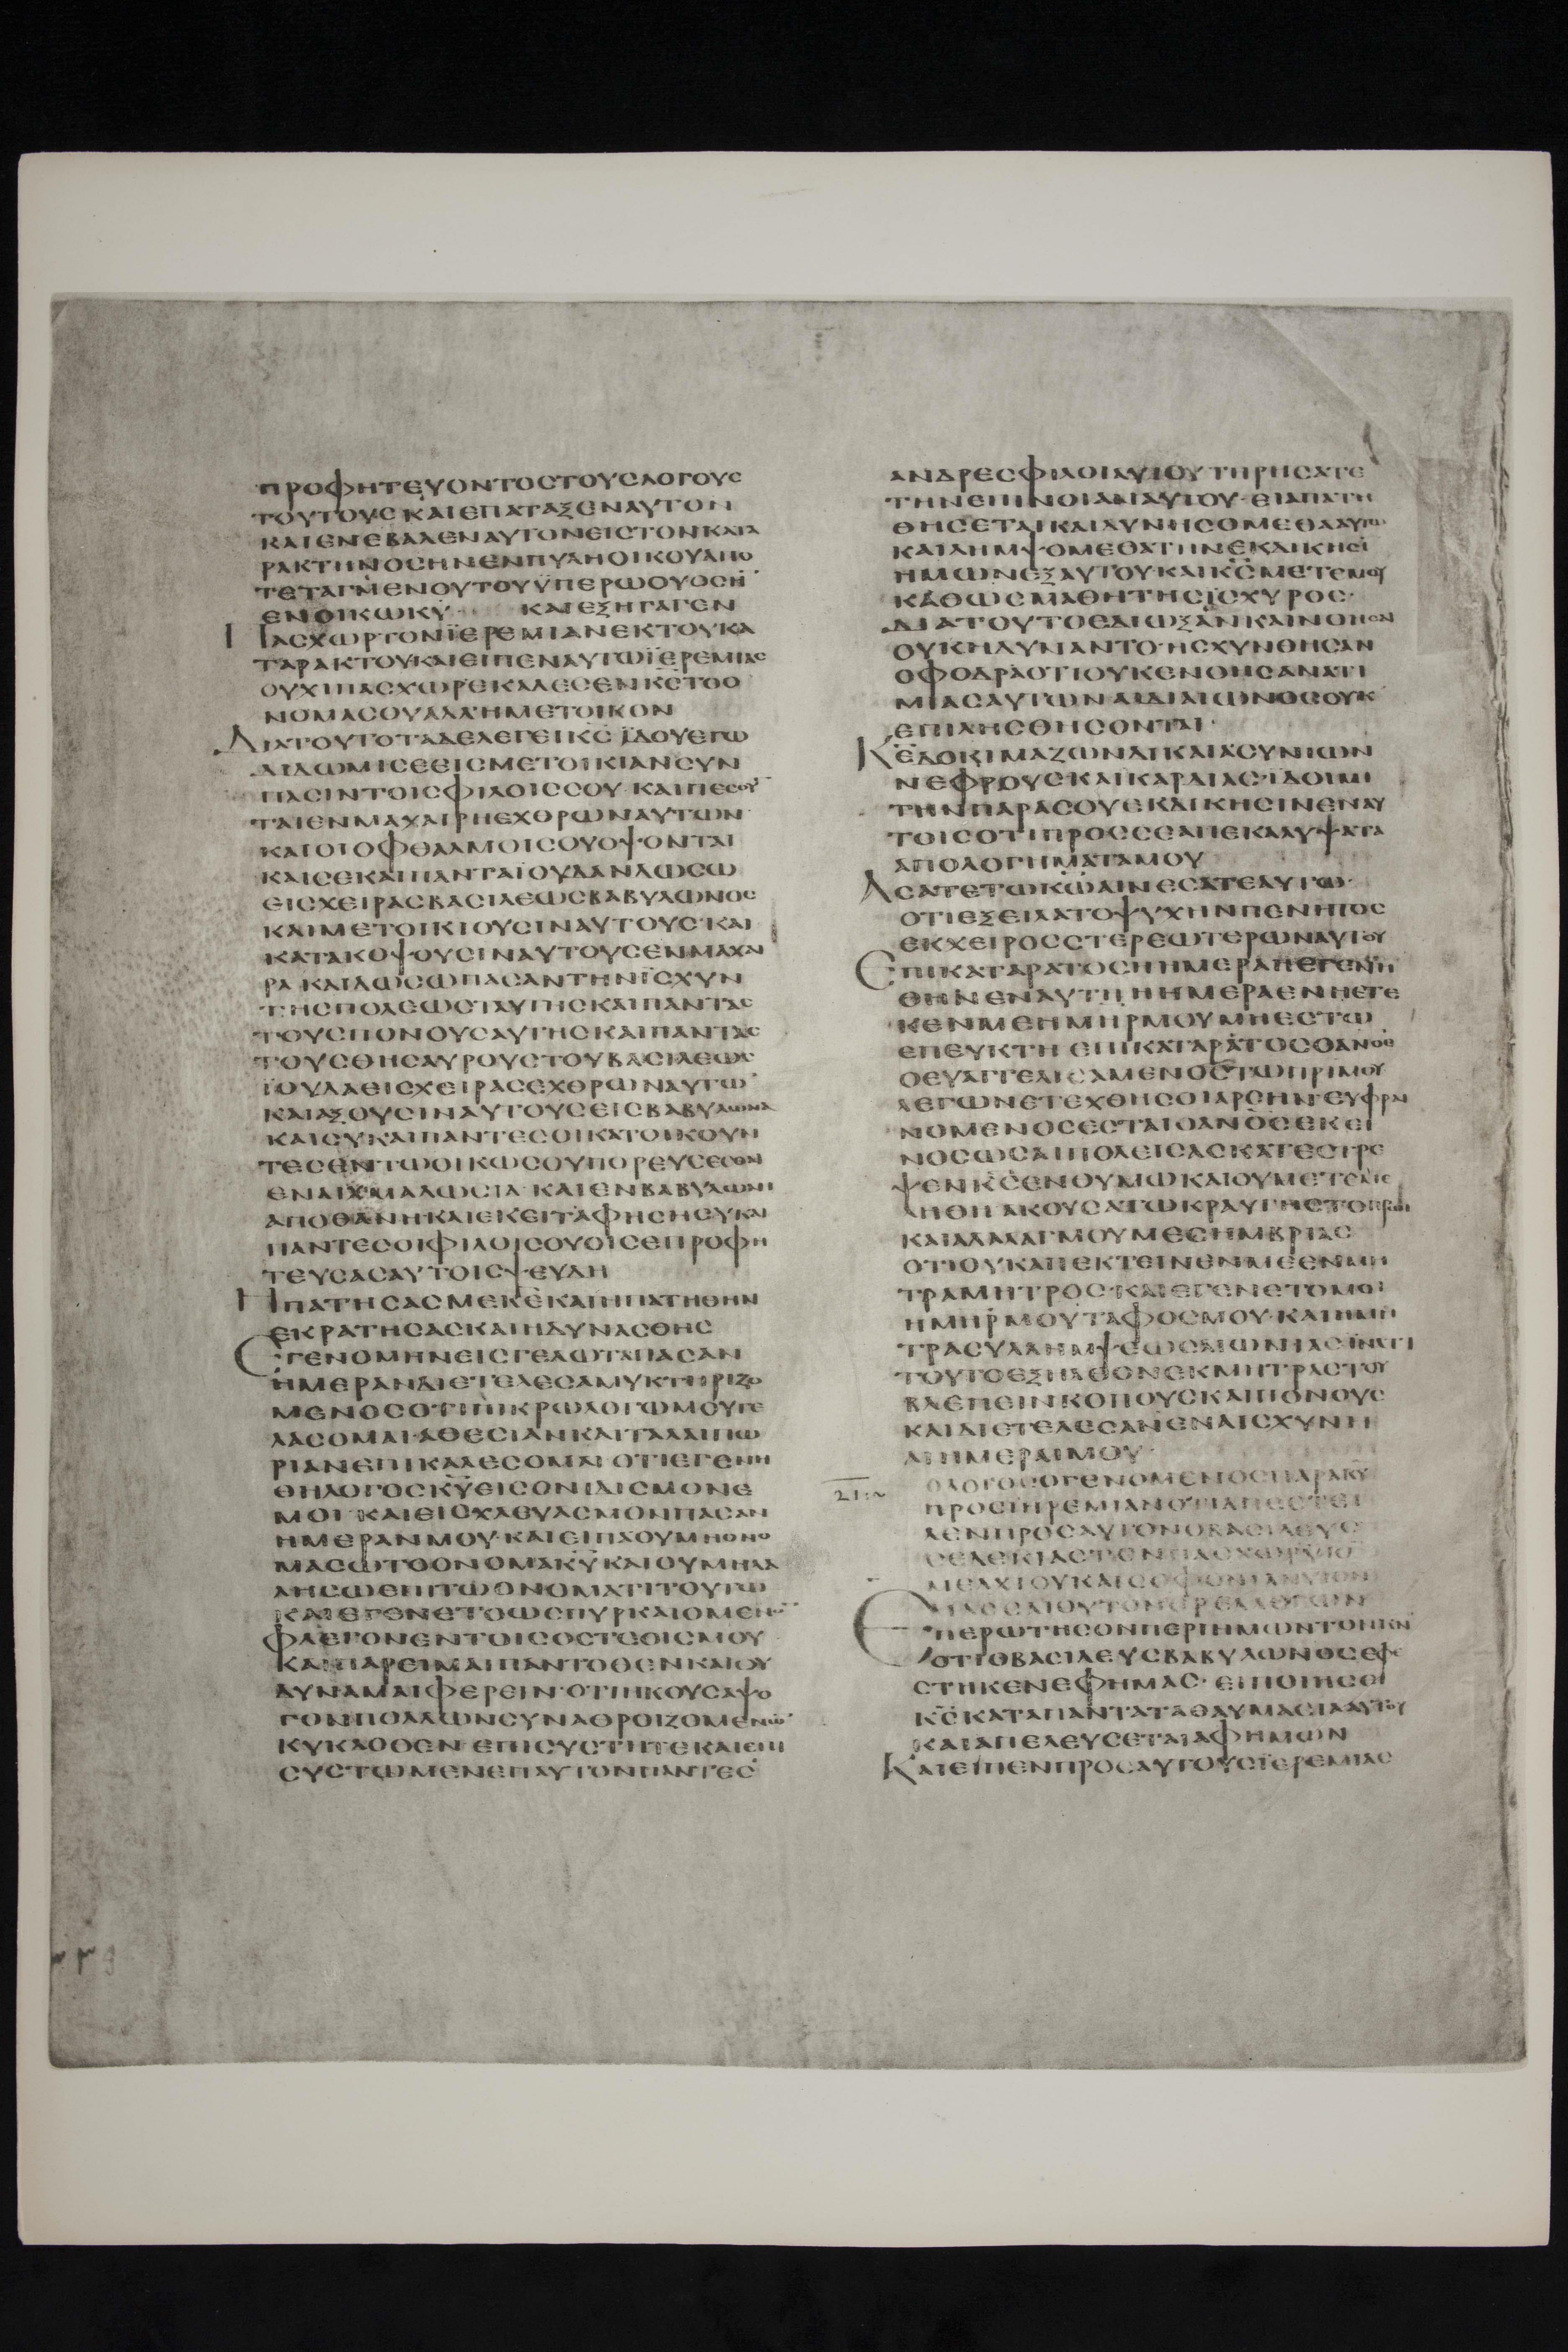 ΠΡΟΦΗΤΕΥΟΝΤΟΣΤΟΥΣΛΟΓΟΥΣ
ΤΟΥΤΟΥΣ ΚΑΙΕΠΑΤΑΞΕΝΑΥΤΟΝ
ΚΑΙΕΝΕΒΑΛΕΝΑΥΤΟΝΕΙΣΤΟΝΚΑΤΑ
ΡΑΚΤΗΝΟΣΗΝΕΝΠΥΛΗΟΙΚΟΥΑΠΟ
ΤΕΤΑΓΜΕΝΟΥΤΟΥΫΠΕΡΩΟΥΟΣΗ̄
ΕΝΟΙΚΩΚῩ ΚΑΙΕΞΗΓΑΓΕΝ
ΠΑΣΧΩΡΤΟΝΪΕΡΕΜΙΑΝΕΚΤΟΥΚΑ
ΤΑΡΑΚΤΟΥ·ΚΑΙΕΙΠΕΝΑΥΤΩΪΕΡΕΜΙΑΣ
ΟΥΧΙΠΑΣΧΩΡΕΚΑΛΕΣΕΝΚ̄Σ̄ΤΟΟ
ΝΟΜΑΣΟΥΑΛΛΗΜΕΤΟΙΚΟΝ
ΔΙΑΤΟΥΤΟΤΑΔΕΛΕΓΕΙΚ̄Σ̄ ΪΔΟΥΕΓΩ
ΔΙΔΩΜΙΣΕΕΙΣΜΕΤΟΙΚΙΑΝΣΥΝ
ΠΑΣΙΝΤΟΙΣΦΙΛΟΙΣΣΟΥ·ΚΑΙΠΕΣΟΥ
ΤΑΙΕΝΜΑΧΑΙΡΗΕΧΘΡΩΝΑΥΤΩΝ
ΚΑΙΟΙΟΦΘΑΛΜΟΙΣΟΥΟΨΟΝΤΑΙ
ΚΑΙΣΕΚΑΙΠΑΝΤΑΪΟΥΔΑΝΔΩΣΩ
ΕΙΣΧΕΙΡΑΣΒΑΣΙΛΕΩΣΒΑΒΥΛΩΝΟΣ
ΚΑΙΜΕΤΟΙΚΙΟΥΣΙΝΑΥΤΟΥΣ·ΚΑΙ
ΚΑΤΑΚΟΨΟΥΣΙΝΑΥΤΟΥΣΕΝΜΑΧΑΙ
ΡΑ ΚΑΙΔΩΣΩΠΑΣΑΝΤΗΝΪΣΧΥΝ
ΤΗΣΠΟΛΕΩΣΤΑΥΤΗΣΚΑΙΠΑΝΤΑΣ
ΤΟΥΣΠΟΝΟΥΣΑΥΤΗΣΚΑΙΠΑΝΤΑΣ
ΤΟΥΣΘΗΣΑΥΡΟΥΣΤΟΥΒΑΣΙΛΕΩΣ
ΪΟΥΔΑΕΙΣΧΕΙΡΑΣΕΧΘΡΩΝΑΥΤΩ̄
ΚΑΙΑΞΟΥΣΙΝΑΥΤΟΥΣΕΙΣΒΑΒΥΛΩΝΑ
ΚΑΙΣΥΚΑΙΠΑΝΤΕΣΟΙΚΑΤΟΙΚΟΥΝ
ΤΕΣΕΝΤΩΟΙΚΩΣΟΥΠΟΡΕΥΣΕΣΘΑΙ
ΕΝΑΙΧΜΑΛΩΣΙΑ·ΚΑΙΕΝΒΑΒΥΛΩΝΙ
ΑΠΟΘΑΝΗ·ΚΑΙΕΚΕΙΤΑΦΗΣΗΣΥΚΑΙ
ΠΑΝΤΕΣΟΙΦΙΛΟΙΣΟΥΟΙΣΕΠΡΟΦΗ
ΤΕΥΣΑΣΑΥΤΟΙΣΨΕΥΔΗ
ΗΠΑΤΗΣΑΣΜΕΚ̄Ε̄ΚΑΙΗΠΑΤΗΘΗΝ
ΕΚΡΑΤΗΣΑΣΚΑΙΗΔΥΝΑΣΘΗΣ
ΕΓΕΝΟΜΗΝΕΙΣΓΕΛΩΤΑΠΑΣΑΝ
ΗΜΕΡΑΝΔΙΕΤΕΛΕΣΑΜΥΚΤΗΡΙΖΟ
ΜΕΝΟΣΟΤΙΠΙΚΡΩΛΟΓΩΜΟΥΓΕ
ΛΑΣΟΜΑΙ·ΑΘΕΣΙΑΝΚΑΙΤΑΛΑΙΠΩ
ΡΙΑΝΕΠΙΚΑΛΕΣΟΜΑΙ ΟΤΙΕΓΕΝΗ
ΘΗΛΟΓΟΣΚ̄Ῡ̄ΕΙΣΟΝΙΔΙΣΜΟΝΕ
ΜΟΙ ΚΑΙΕΙΣΧΛΕΥΑΣΜΟΝΠΑΣΑΝ
ΗΜΕΡΑΝΜΟΥ·ΚΑΙΕΙΠΑΟΥΜΗΟΝΟ
ΜΑΣΩΤΟΟΝΟΜΑΚ̄Ῡ ΚΑΙΟΥΜΗΛΑ
ΛΗΣΩΕΠΙΤΩΟΝΟΜΑΤΙΤΟΥΤΩ
ΚΑΙΕΓΕΝΕΤΟΩΣΠΥΡΚΑΙΟΜΕΝΟ̄
ΦΛΕΓΟΝΕΝΤΟΙΣΟΣΤΕΟΙΣΜΟΥ
ΚΑΙΠΑΡΕΙΜΑΙΠΑΝΤΟΘΕΝΚΑΙΟΥ
ΔΥΝΑΜΑΙΦΕΡΕΙΝ·ΟΤΙΗΚΟΥΣΑΨΟ
ΓΟΝΠΟΛΛΩΝΣΥΝΑΘΡΟΙΖΟΜΕΝΩ̄
ΚΥΚΛΟΘΕΝ·ΕΠΙΣΥΣΤΗΤΕΚΑΙΕΠΙ
ΣΥΣΤΩΜΕΝΕΠΑΥΤΟΝΠΑΝΤΕΣ
ΑΝΔΡΕΣΦΙΛΟΙΑΥΤΟΥ ΤΗΡΗΣΑΤΕ
ΤΗΝΕΠΙΝΟΙΑΝΑΥΤΟΥ·ΕΙΑΠΑΤΗ
ΘΗΣΕΤΑΙΚΑΙΔΥΝΗΣΟΜΕΘΑΑΥΤΩ
ΚΑΙΛΗΜΨΟΜΕΘΑΤΗΝΕΚΔΙΚΗΣΙ
ΗΜΩΝΕΞΑΥΤΟΥ·ΚΑΙΚ̄Σ̄ΜΕΤΕΜΟΥ
ΚΑΘΩΣΜΑΧΗΤΗΣΪΣΧΥΡΟΣ·
ΔΙΑΤΟΥΤΟΕΔΙΩΞΑΝΚΑΙΝΟΗΣΑΙ
ΟΥΚΗΔΥΝΑΝΤΟ·ΗΣΧΥΝΘΗΣΑΝ
ΣΦΟΔΡΑΟΤΙΟΥΚΕΝΟΗΣΑΝΑΤΙ
ΜΙΑΣΑΥΤΩΝΑΙΔΙΑΙΩΝΟΣΟΥΚ
ΕΠΙΛΗΣΘΗΣΟΝΤΑΙ·
Κ̄Ε̄ΔΟΚΙΜΑΖΩΝΔΙΚΑΙΑΣΥΝΙΩΝ
ΝΕΦΡΟΥΣΚΑΙΚΑΡΔΙΑΣ·ΪΔΟΙΜΙ
ΤΗΝΠΑΡΑΣΟΥΕΚΔΙΚΗΣΙΝΕΝΑΥ
ΤΟΙΣΟΤΙΠΡΟΣΣΕΑΠΕΚΑΛΥΨΑΤΑ
ΑΠΟΛΟΓΗΜΑΤΑΜΟΥ
ΑΣΑΤΕΤΩΚ̄Ω̄ΑΙΝΕΣΑΤΕΑΥΤΩ·
ΟΤΙΕΞΕΙΛΑΤΟΨΥΧΗΝΠΕΝΗΤΟΣ
ΕΚΧΕΙΡΟΣΣΤΕΡΕΩΤΕΡΩΝΑΥΤΟΥ
ΕΠΙΚΑΤΑΡΑΤΟΣΗΗΜΕΡΑΗΕΓΕΝΗ
ΘΗΝΕΝΑΥΤΗ ΗΗΜΕΡΑΕΝΗΕΤΕ
ΚΕΝΜΕΗΜΗΡΜΟΥΜΗΕΣΤΩ
ΕΠΕΥΚΤΗ ΕΠΙΚΑΤΑΡΑΤΟΣΟΑΝΟΣ
ΟΕΥΑΓΓΕΛΙΣΑΜΕΝΟΣΤΩΠΡΙΜΟΥ
ΛΕΓΩΝΕΤΕΧΘΗΣΟΙΑΡΣΗΝ·ΕΥΦΡΑΙ
ΝΟΜΕΝΟΣΕΣΤΑΙΟΑΝΟ̄Σ̄ΕΚΕΙ
ΝΟΣΩΣΑΙΠΟΛΕΙΣΑΣΚΑΤΕΣΤΡΕ
ΨΕΝΚ̄Σ̄ΕΝΘΥΜΩΚΑΙΟΥΜΕΤΕΜΕ
ΛΗΘΗ ΑΚΟΥΣΑΤΩΚΡΑΥΓΗΣΤΟΠΡΩΙ
ΚΑΙΑΛΑΛΑΓΜΟΥΜΕΣΗΜΒΡΙΑΣ
ΟΤΙΟΥΚΑΠΕΚΤΕΙΝΕΝΜΕΕΝΜΗ
ΤΡΑΜΗΤΡΟΣ·ΚΑΙΕΓΕΝΕΤΟΜΟΙ
ΗΜΗΡΜΟΥΤΑΦΟΣΜΟΥ·ΚΑΙΗΜΗ
ΤΡΑΣΥΛΛΗΜΨΕΩΣΑΙΩΝΙΑΣ·ΪΝΑΤΙ
ΤΟΥΤΟΕΞΗΛΘΟΝΕΚΜΗΤΡΑΣΤΟΥ
ΒΛΕΠΕΙΝΚΟΠΟΥΣΚΑΙΠΟΝΟΥΣ
ΚΑΙΔΙΕΤΕΛΕΣΑΝΕΝΑΙΣΧΥΝΗ
ΑΙΗΜΕΡΑΙΜΟΥ·
21:~ ΟΛΟΓΟΣΟΓΕΝΟΜΕΝΟΣΠΑΡΑΚ̄Ῡ
ΠΡΟΣΪΗΡΕΜΙΑΝΟΤΙΑΠΕΣΤΕΙ
ΛΕΝΠΡΟΣΑΥΤΟΝΟΒΑΣΙΛΕΥΣ
ΣΕΔΕΚΙΑΣΤΟΝΠΑΣΧΩΡΥΙΟ̄
ΜΕΛΧΙΟΥΚΑΙΣΟΦΟΝΙΑΝΥΙΟΝ
ΜΑΣΣΑΙΟΥΤΟΝΪΕΡΕΑΛΕΓΩΝ
ΕΠΕΡΩΤΗΣΟΝΠΕΡΙΗΜΩΝΤΟΝΚ̄Ν̄
ΟΤΙΟΒΑΣΙΛΕΥΣΒΑΒΥΛΩΝΟΣΕΦΕ
ΣΤΗΚΕΝΕΦΗΜΑΣ· ΕΙΠΟΙΗΣΕΙ
Κ̄Σ̄ΚΑΤΑΠΑΝΤΑΤΑΘΑΥΜΑΣΙΑΑΥΤΟΥ
ΚΑΙΑΠΕΛΕΥΣΕΤΑΙΑΦΗΜΩΝ
ΚΑΙΕΙΠΕΝΠΡΟΣΑΥΤΟΥΣΪΕΡΕΜΙΑΣ